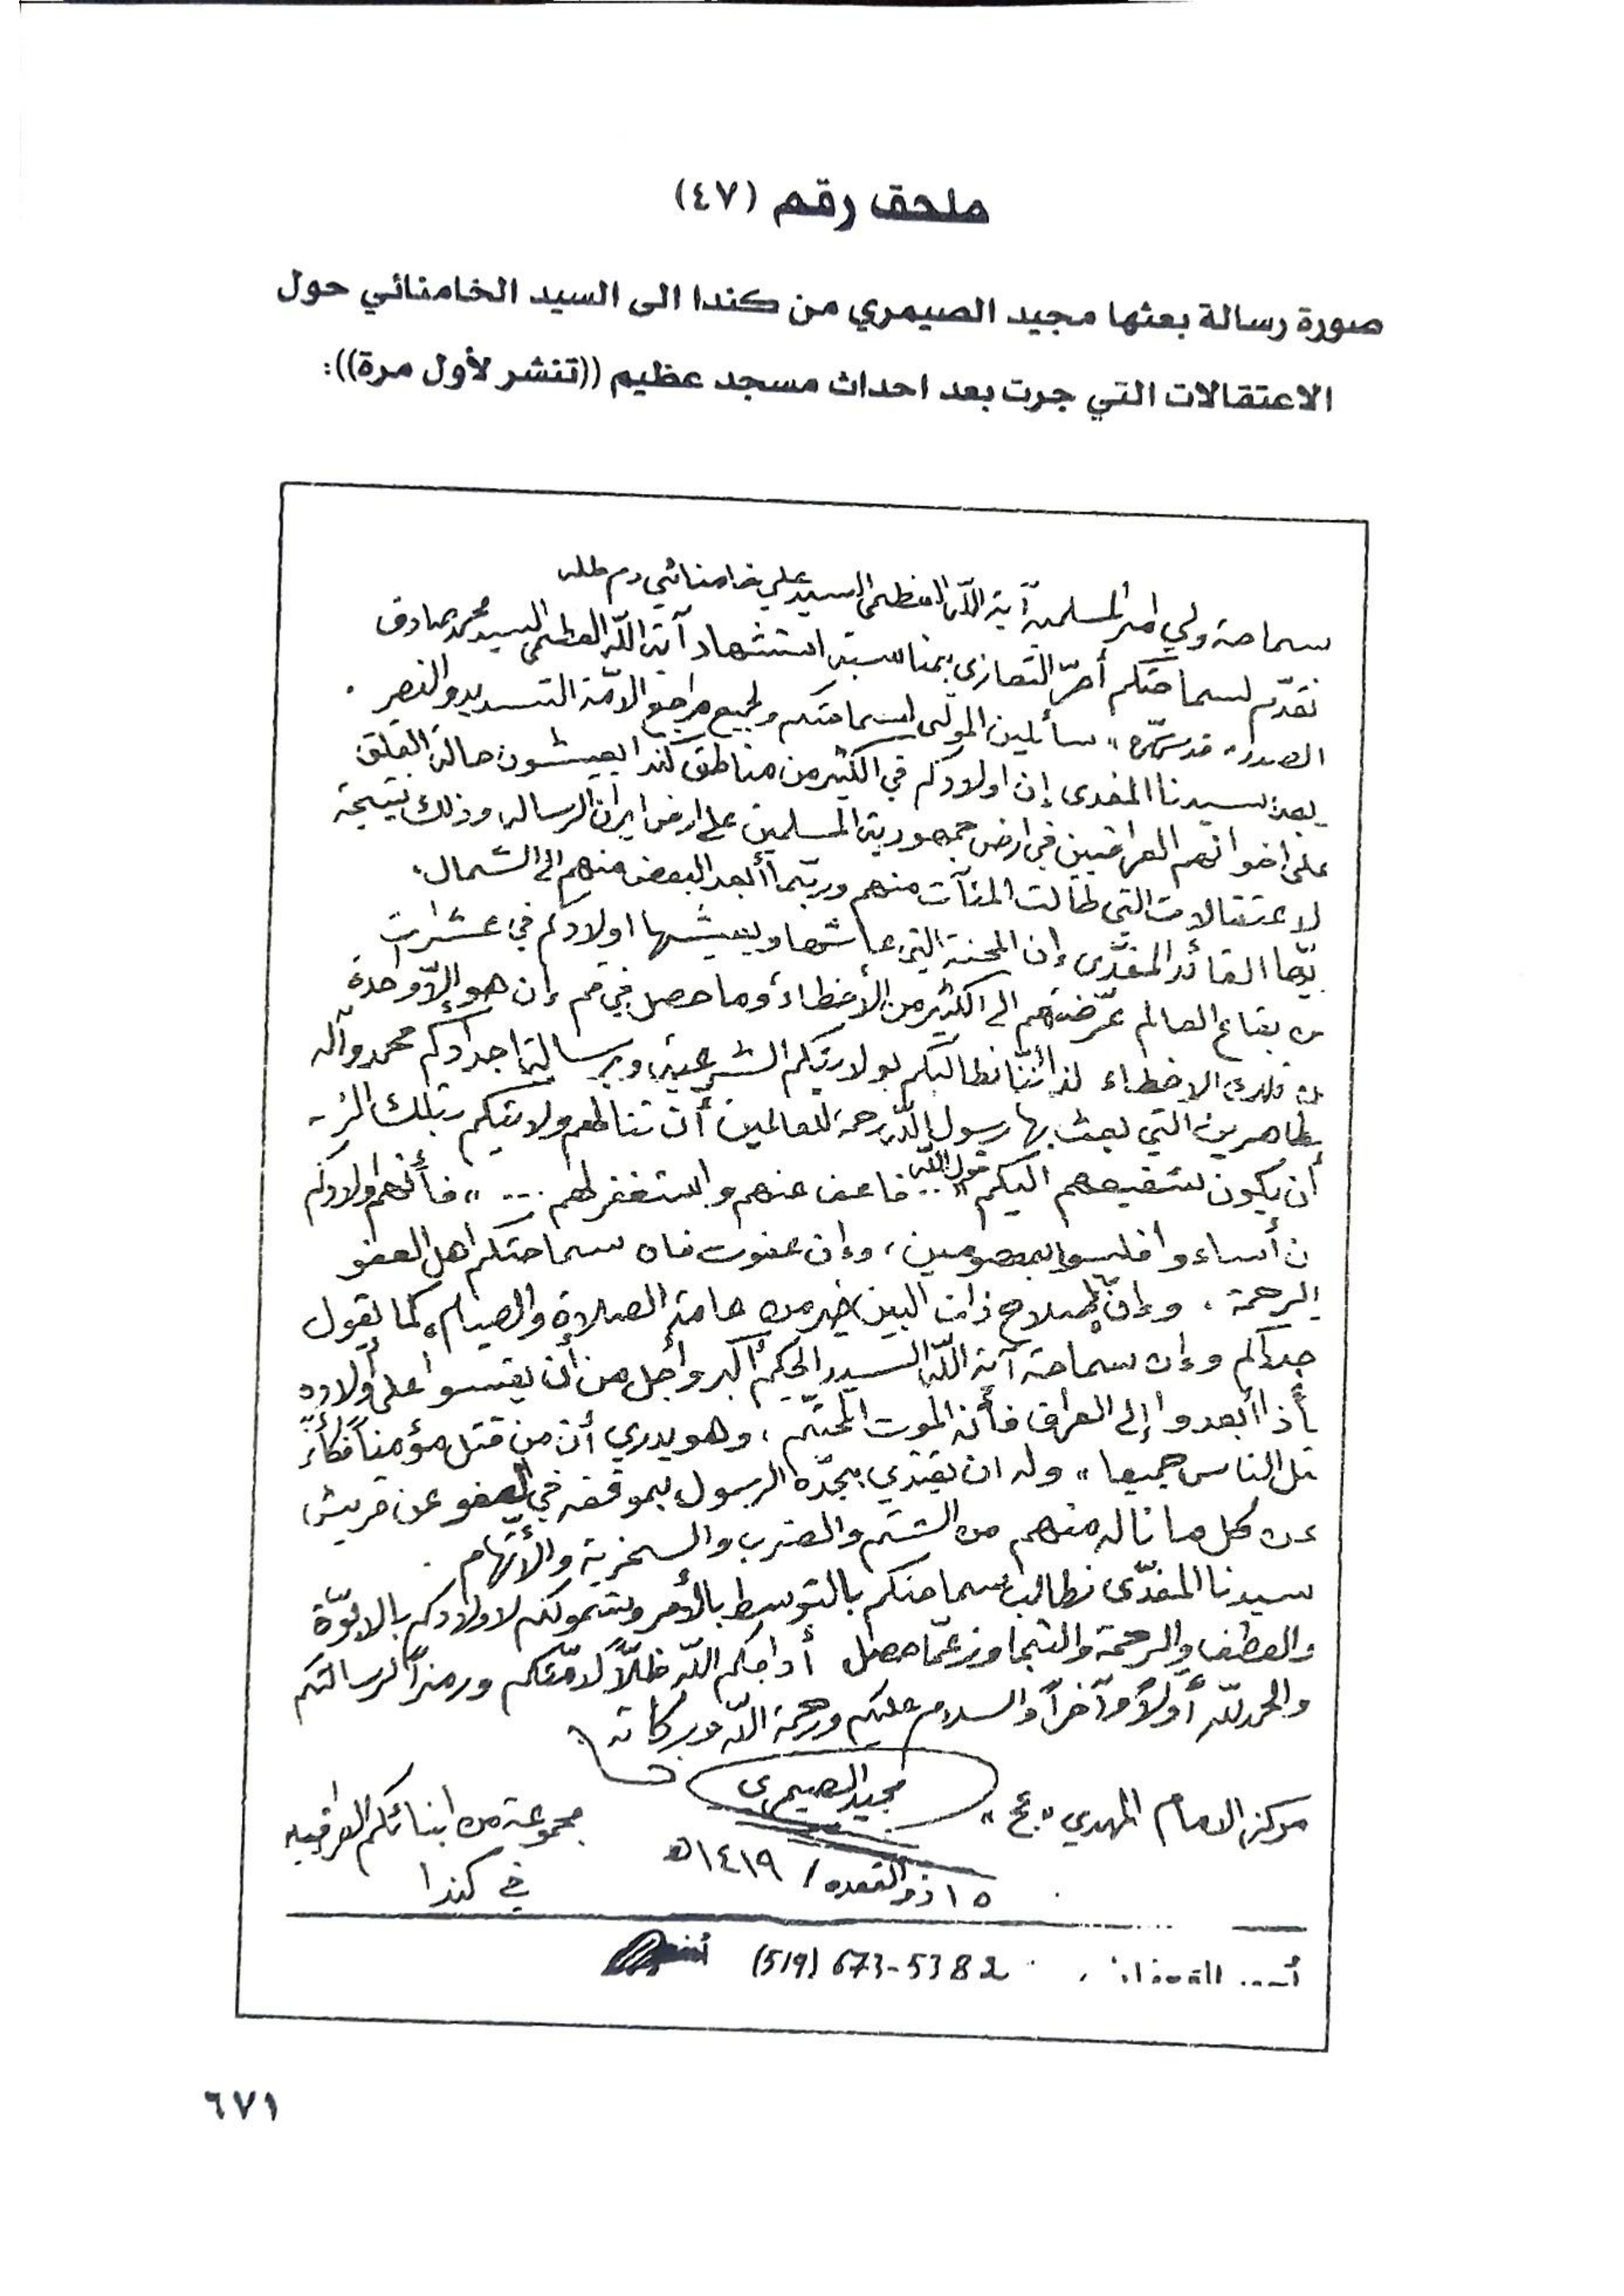 ملحق رقم (٤٧)
صورة رسالة بعثها مجيد الصيمري من كندا الى السيد الخامنائي حول
الاعتقالات التي جرت بعد احداث مسجد عظيم ((تنشر لأول مرة)):
سماحة ولي امر المسلمين آية الله العظمى السيد علي خامنائي دام ظله
نقدّم لسماحتكم أحرّ التعازي بمناسبة استشهاد آية الله العظمى السيد محمد صادق
الصدر " قدس سره " سائلين المولى لسماحتكم ولجميع مراجع الامّة التسديد والنصر .
بعد: سيدنا المفدى إن اولادكم في الكثير من مناطق كندا يعيشون حالة القلق
على اخوانهم العراقيين في ارض جمهورية المسلمين على ارض ايران الرسالة، وذلك نتيجة
لاعتقالات التي طالت المئآت منهم وربّما أبعد البعض منهم الى الشمال.
يّها القائد المفدّى إن المحنة التي عاشها ويعيشها اولادكم في عشرات
من بقاع العالم عرّضتهم الى الكثير من الأخطاء وما حصل في قم إن هو إلّا واحدة
من تلك الاخطاء لذا إننا نطالبكم بولايتكم الشرعية، وبرسالة اجدادكم محمد وآله
طاهرين التي بعث بها رسول الله رحمة للعالمين أن تنالهم ولايتكم بتلك
أن يكون شفيعهم اليكم قول الله " فاعف عنهم واستغفر لهم ... " فأنهم اولادكم
ن أساءوا فليسوا بمعصومين، وإن عفوت فان سماحتكم اهل العفو
الرحمة . وإنّ إصلاح ذات البين خير من عامة الصلاة والصيام، كما يقول
جدكم وإن سماحة آية الله السيد الحكيم أكبر وأجل من أن يقسوا على أولاده
أذا أبعدوا إلى العراق فأنه الموت المحتّم، وهو يدري أن من قتل مؤمناً فكأنّ
تل الناس جميعا " وله ان يقتدي بجدّه الرسول بموقفه في العفو عن قريش
عن كل ما ناله منهم من الشتم والضرب والسخرية والأتّهام .
سيدنا المفدّى نطالب سماحتكم بالتوسط بالأمر وشموكم لاولادكم بالابوّة
والعطف والرحمة والتجاوز عمّا حصل أدامكم الله ظلّاً لامّتكم ورمزاً لرسالتكم
والحمد لله أولاً وآخراً والسلام عليكم ورحمة الله وبركاته
مركز الامام المهدي "عج" مجيد الصيمري مجموعة من ابنائكم العراقيين
١٥ ذو القعده / ١٤١٩ه في كندا
(519) 673-5382
٦٧١